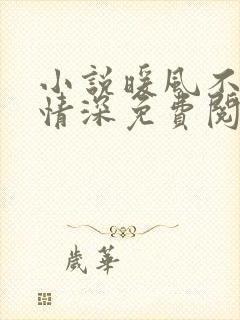 小說暖風不
情深免費閱
歲華